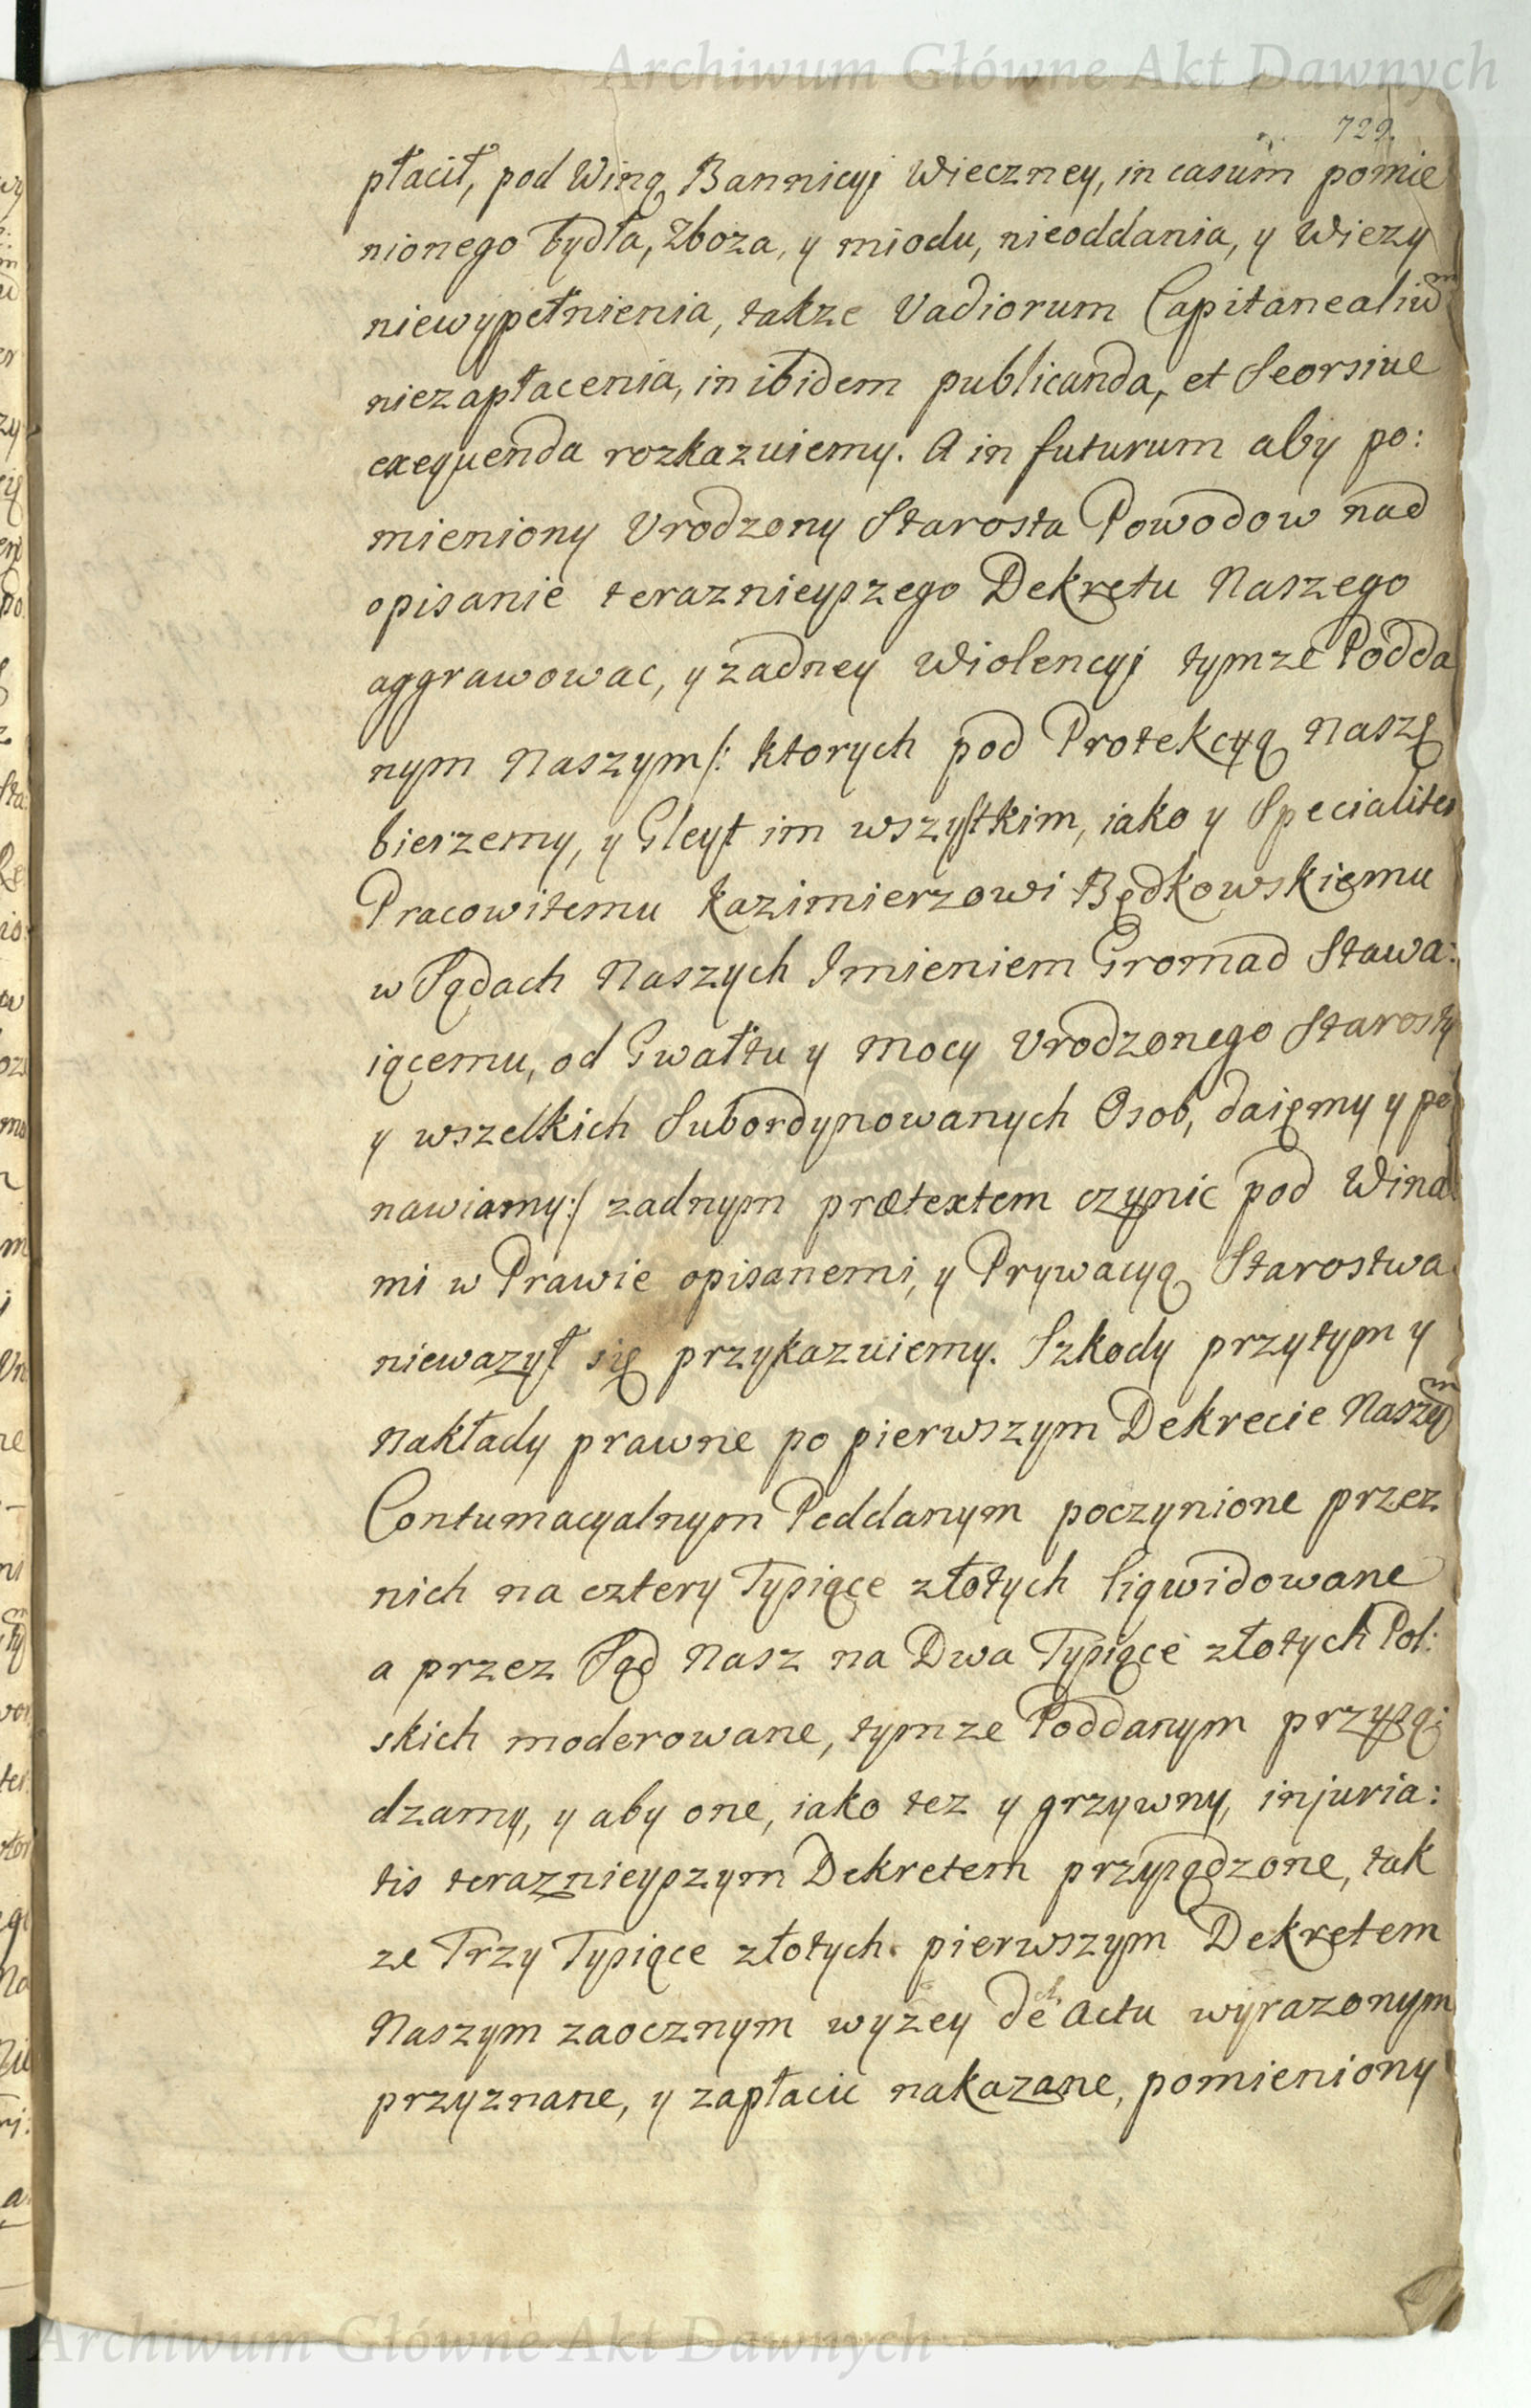 Archiwum Główne Akt Dawnych
729.
płacił, pod Winą Bannicyi Wieczney, in casum pomie
nionego bydła, Zboza, y miodu, nieoddania, y Wiezy
niewypełnienia, takze Vadiorum Capitanealium
niezapłacenia, in ibidem publicanda, et Seorsiue
exequenda rozkazuiemy. A in futurum aby po:
mieniony Vrodzony Starosta Powodow nad
opisanie teraznieyszego Dekretu Naszego
aggrawowac, y zadney Wiolencyi tymze Podda
nym Naszym/: ktorych pod Protekcyą Naszę
bierzemy, y Gleyt im wszystkim, iako y Specialiter
Pracowitemu Kazimierzowi Będkowskiemu
w Sądach Naszych Imieniem Gromad Stawa:
iącemu, od Gwałtu y Mocy Vrodzonego Starosty
y wszelkich Subordynowanych Osob, daięmy y po
nawiamy:/ zadnym prætextem czynic pod Wina
mi w Prawie opisanemi, y Prywacyą Starostwa
niewazył się przykazuiemy. Szkody przytym y
Nakłady prawne po pierwszym Dekrecie Naszym
Contumacyalnym Poddanym poczynione przez
nich na cztery Tysiące złotych liqwidowane
a przez Sąd Nasz na Dwa Tysiące złotych Pol:
skich moderowane, tymze Poddanym przysą:
dzamy, y aby one, iako tez y grzywny, injuria:
tis teraznieyszym Dekretem przysądzone, tak
ze Trzy Tysiące złotych pierwszym Dekretem
Naszym zaocznym wyzey de Actu wyrazonym
przyznane, y zapłacic nakazane, pomieniony
Archiwum Główne Akt Dawnych